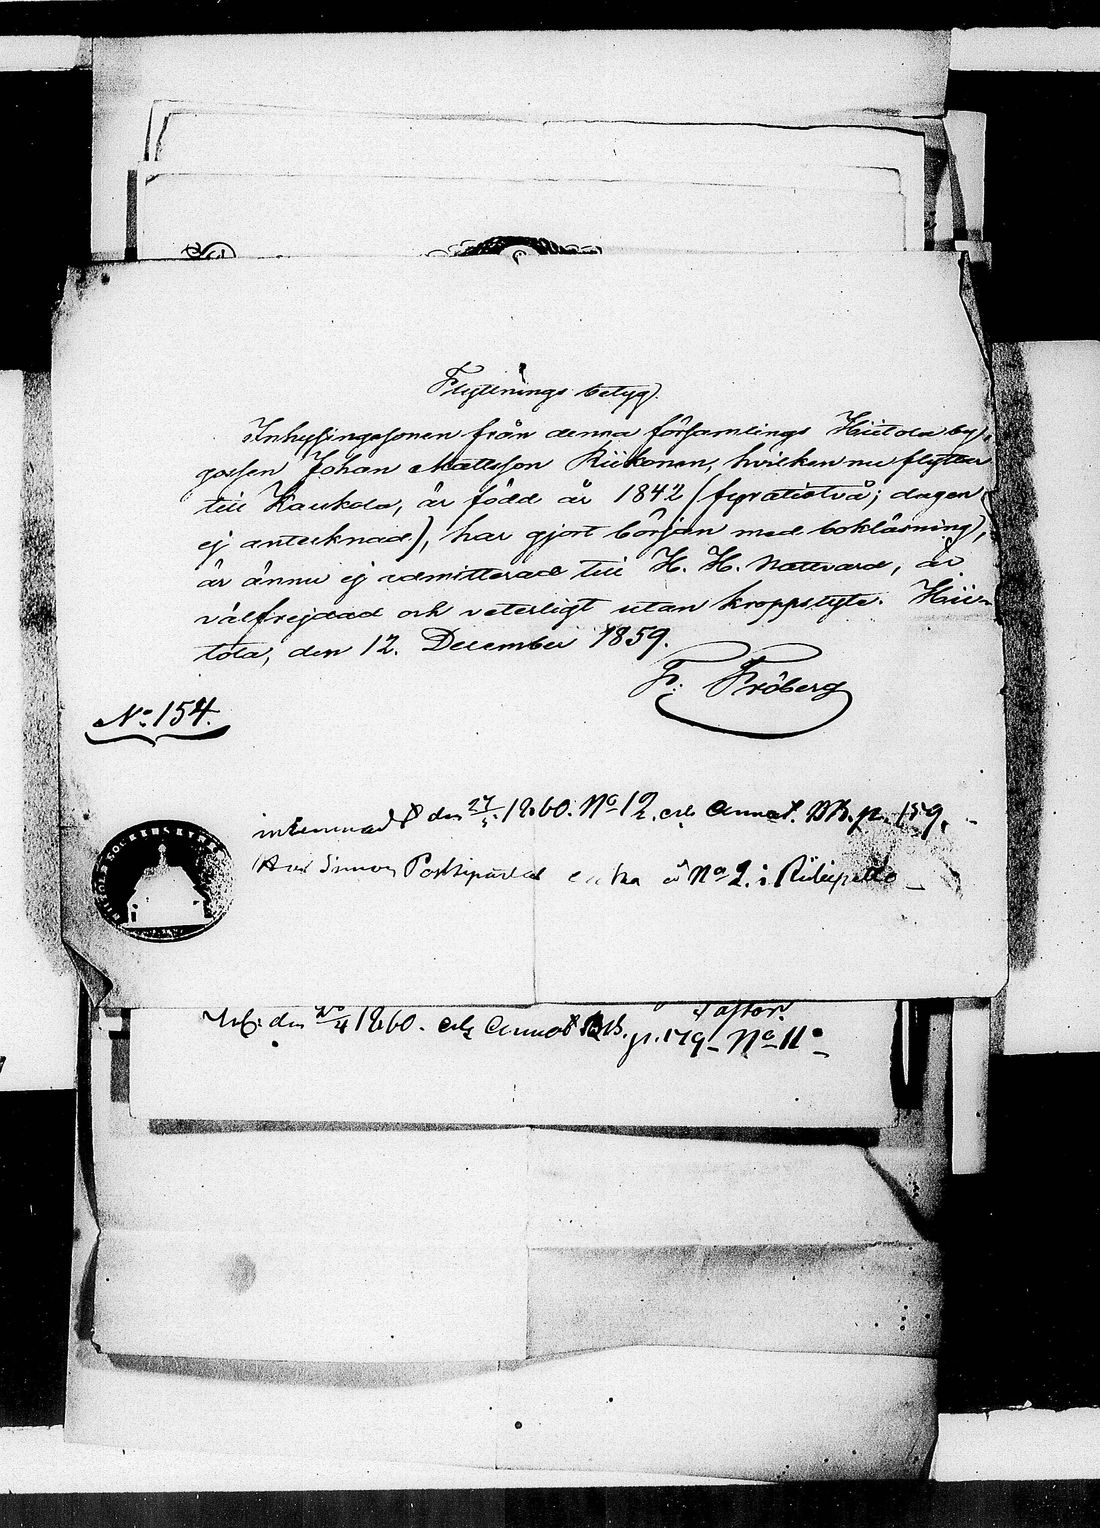 Flyttnings betyg.
Inhysingesonen från denna församlings Hiitola by,
gossen Johan Mattsson Riikonen, hvilken nu flyttar
till Kaukola, är född år 1842 (fyratiotvå; dagen
ej antecknad), har gjort början med bokläsning,
är ännu ej admitterad till H. H. Nattvard, är
välfrejdad och veterligt utan kroppslyte. Hii-
tola, den 12. December 1859.
Fr. Fröberg
No 154.
den 27/5 1860. No 12. Annot. BB. p. 159.
Hos Simon å No 2. i
SOCKENS KYRK
Pastor
den 20/4 1860. Annot BB. p. 179 - No 11